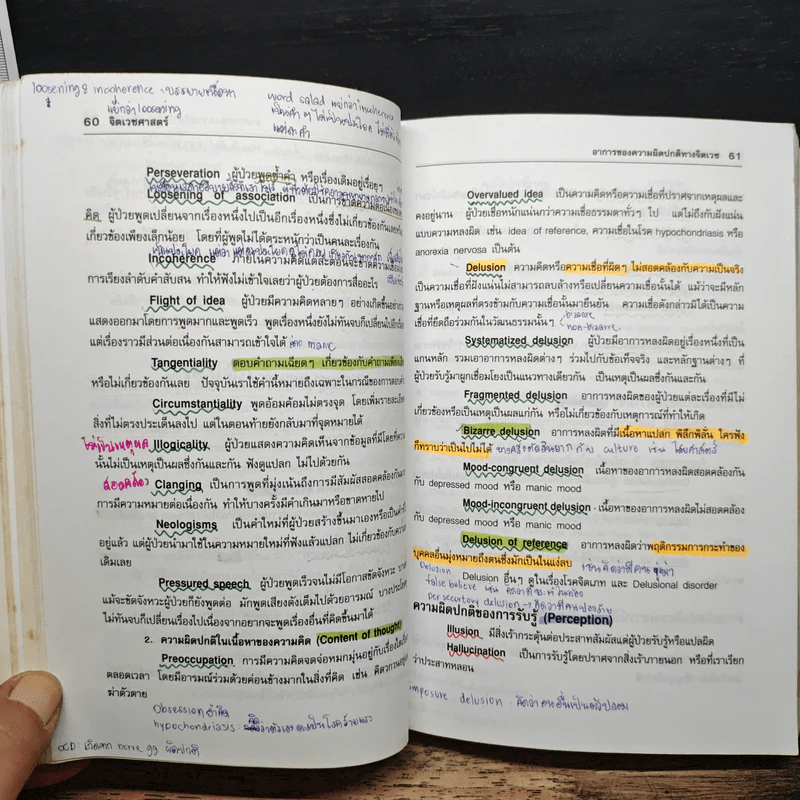 loosening & incoherence
แย่กว่า loosening
word salad แย่กว่า incoherence
60 จิตเวชศาสตร์
Perseveration ผู้ป่วยพูดซ้ำคำ หรือเรื่องเดิมอยู่เรื่อยๆ
Loosening of association เป็นการขาดความต่อเนื่องของ
คิด ผู้ป่วยพูดเปลี่ยนจากเรื่องหนึ่งไปเป็นอีกเรื่องหนึ่งซึ่งไม่เกี่ยวข้องกันเลยหรือ
เกี่ยวข้องเพียงเล็กน้อย โดยที่ผู้พูดไม่ได้ตระหนักว่าเป็นคนละเรื่องกัน
Incoherence ภายในความคิดแต่ละตอนจะขาดความเชื่อม
การเรียงลำดับคำสับสน ทำให้ฟังไม่เข้าใจเลยว่าผู้ป่วยต้องการสื่ออะไร
Flight of idea ผู้ป่วยมีความคิดหลายๆ อย่างเกิดขึ้นอย่าง
แสดงออกมาโดยการพูดมากและพูดเร็ว พูดเรื่องหนึ่งยังไม่ทันจบก็เปลี่ยนไปอีกเรื่อง
แต่เรื่องราวมีส่วนต่อเนื่องกันสามารถเข้าใจได้
Tangentiality ตอบคำถามเฉียดๆ เกี่ยวข้องกับคำถามเพียง
หรือไม่เกี่ยวข้องกันเลย ปัจจุบันเราใช้คำนี้หมายถึงเฉพาะในกรณีของการตอบคำ
Circumstantiality พูดอ้อมค้อมไม่ตรงจุด โดยเพิ่มรายละเอียด
สิ่งที่ไม่ตรงประเด็นลงไป แต่ในตอนท้ายยังกลับมาที่จุดหมายได้
ไม่เป็นเหตุผล Illogicality ผู้ป่วยแสดงความคิดเห็นจากข้อมูลที่มีโดยที่ความ
นั้นไม่เป็นเหตุเป็นผลซึ่งกันและกัน ฟังดูแปลก ไม่ไปด้วยกัน
สอดคล้อง Clanging เป็นการพูดที่มุ่งเน้นถึงการมีสัมผัสสอดคล้องกัน
การมีความหมายต่อเนื่องกัน ทำให้บางครั้งมีคำเกินมาหรือขาดหายไป
Neologisms เป็นคำใหม่ที่ผู้ป่วยสร้างขึ้นมาเองหรือเป็นคำ
อยู่แล้ว แต่ผู้ป่วยนำมาใช้ในความหมายใหม่ที่ฟังแล้วแปลก ไม่เกี่ยวข้องกับความ
เดิมเลย
Pressured speech ผู้ป่วยพูดเร็วจนไม่มีโอกาสขัดจังหวะ
แม้จะขัดจังหวะผู้ป่วยก็ยังพูดต่อ มักพูดเสียงดังเต็มไปด้วยอารมณ์ บางประโยค
ไม่ทันจบก็เปลี่ยนเรื่องไปเนื่องจากอยากจะพูดเรื่องอื่นที่คิดขึ้นมาได้
2. ความผิดปกติในเนื้อหาของความคิด (Content of thought)
Preoccupation การมีความคิดจดจ่อหมกมุ่นอยู่กับเรื่องใดเรื่อง
ตลอดเวลา โดยมีอารมณ์ร่วมด้วยค่อนข้างมากในสิ่งที่คิด เช่น คิดวกวน
ฆ่าตัวตาย
Obsession ย้ำคิด
hypochondriasis
OCD
อาการของความผิดปกติทางจิตเวช 61
Overvalued idea เป็นความคิดหรือความเชื่อที่ปราศจากเหตุผลและ
คงอยู่นาน ผู้ป่วยเชื่อหนักแน่นกว่าความเชื่อธรรมดาทั่วๆ ไป แต่ไม่ถึงกับฝังแน่น
แบบความหลงผิด เช่น idea of reference, ความเชื่อในโรค hypochondriasis หรือ
anorexia nervosa เป็นต้น
Delusion ความคิดหรือความเชื่อที่ผิดๆ ไม่สอดคล้องกับความเป็นจริง
เป็นความเชื่อที่ฝังแน่นไม่สามารถลบล้างหรือเปลี่ยนความเชื่อนั้นได้ แม้ว่าจะมีหลัก
ฐานหรือเหตุผลที่ตรงข้ามกับความเชื่อนั้นมายืนยัน ความเชื่อดังกล่าวมิได้เป็นความ
เชื่อที่ยึดถือร่วมกันในวัฒนธรรมนั้นๆ bizarre
non-bizarre
Systematized delusion ผู้ป่วยมีอาการหลงผิดอยู่เรื่องหนึ่งที่เป็น
แกนหลัก รวมเอาอาการหลงผิดต่างๆ ร่วมไปกับข้อเท็จจริง และหลักฐานต่างๆ ที่
ผู้ป่วยรับรู้มาผูกเชื่อมโยงเป็นแนวทางเดียวกัน เป็นเหตุเป็นผลซึ่งกันและกัน
Fragmented delusion อาการหลงผิดของผู้ป่วยแต่ละเรื่องที่มีไม่
เกี่ยวข้องหรือเป็นเหตุเป็นผลแก่กัน หรือไม่เกี่ยวข้องกับเหตุการณ์ที่ทำให้เกิด
Bizarre delusion อาการหลงผิดที่มีเนื้อหาแปลก พิลึกพิลั่น ใครฟัง
ก็ทราบว่าเป็นไปไม่ได้
Mood-congruent delusion เนื้อหาของอาการหลงผิดสอดคล้อง
กับ depressed mood หรือ manic mood
Mood-incongruent delusion เนื้อหาของอาการหลงผิดไม่สอดคล้อง
กับ depressed mood หรือ manic mood
Delusion of reference อาการหลงผิดว่าพฤติกรรมการกระทำของ
บุคคลอื่นมุ่งหมายถึงตนซึ่งมักเป็นในแง่ลบ
Delusion
Delusion อื่นๆ ดูในเรื่องโรคจิตเภท และ Delusional disorder
false believe
persecutory delusion
ความผิดปกติของการรับรู้ (Perception)
Illusion มีสิ่งเร้ากระตุ้นต่อประสาทสัมผัสแต่ผู้ป่วยรับรู้หรือแปลผิด
Hallucination เป็นการรับรู้โดยปราศจากสิ่งเร้าภายนอก หรือที่เราเรียก
ว่าประสาทหลอน
delusion : คิดว่าคนอื่นเป็นตัวปลอม